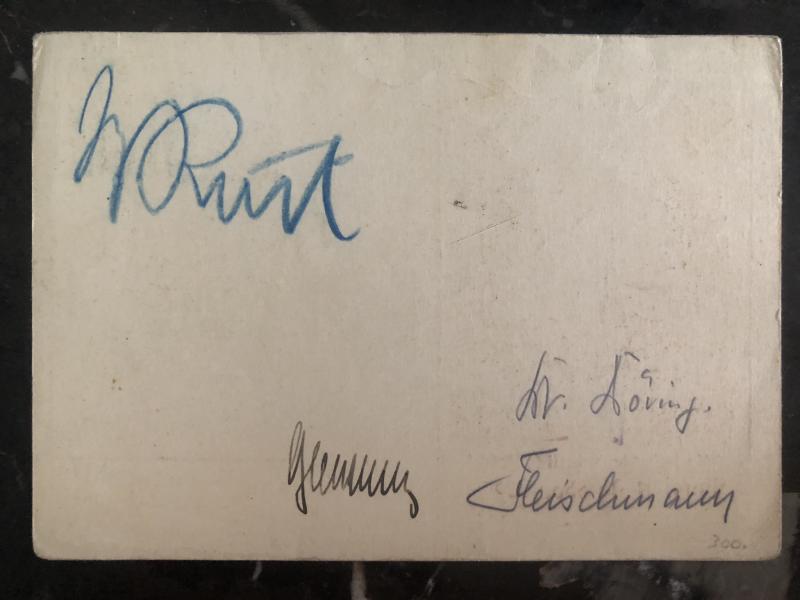 Rust
Dr. Döring.
Fleischmann
300.